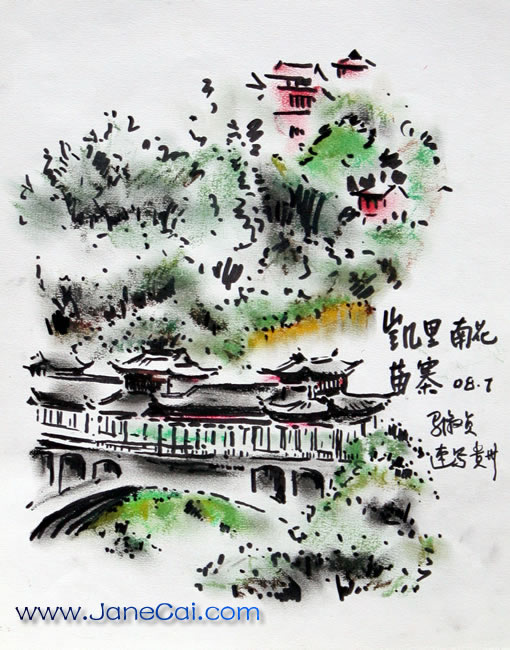 凯里 南花
苗寨 08.7
速写贵州
www.JaneCai.com